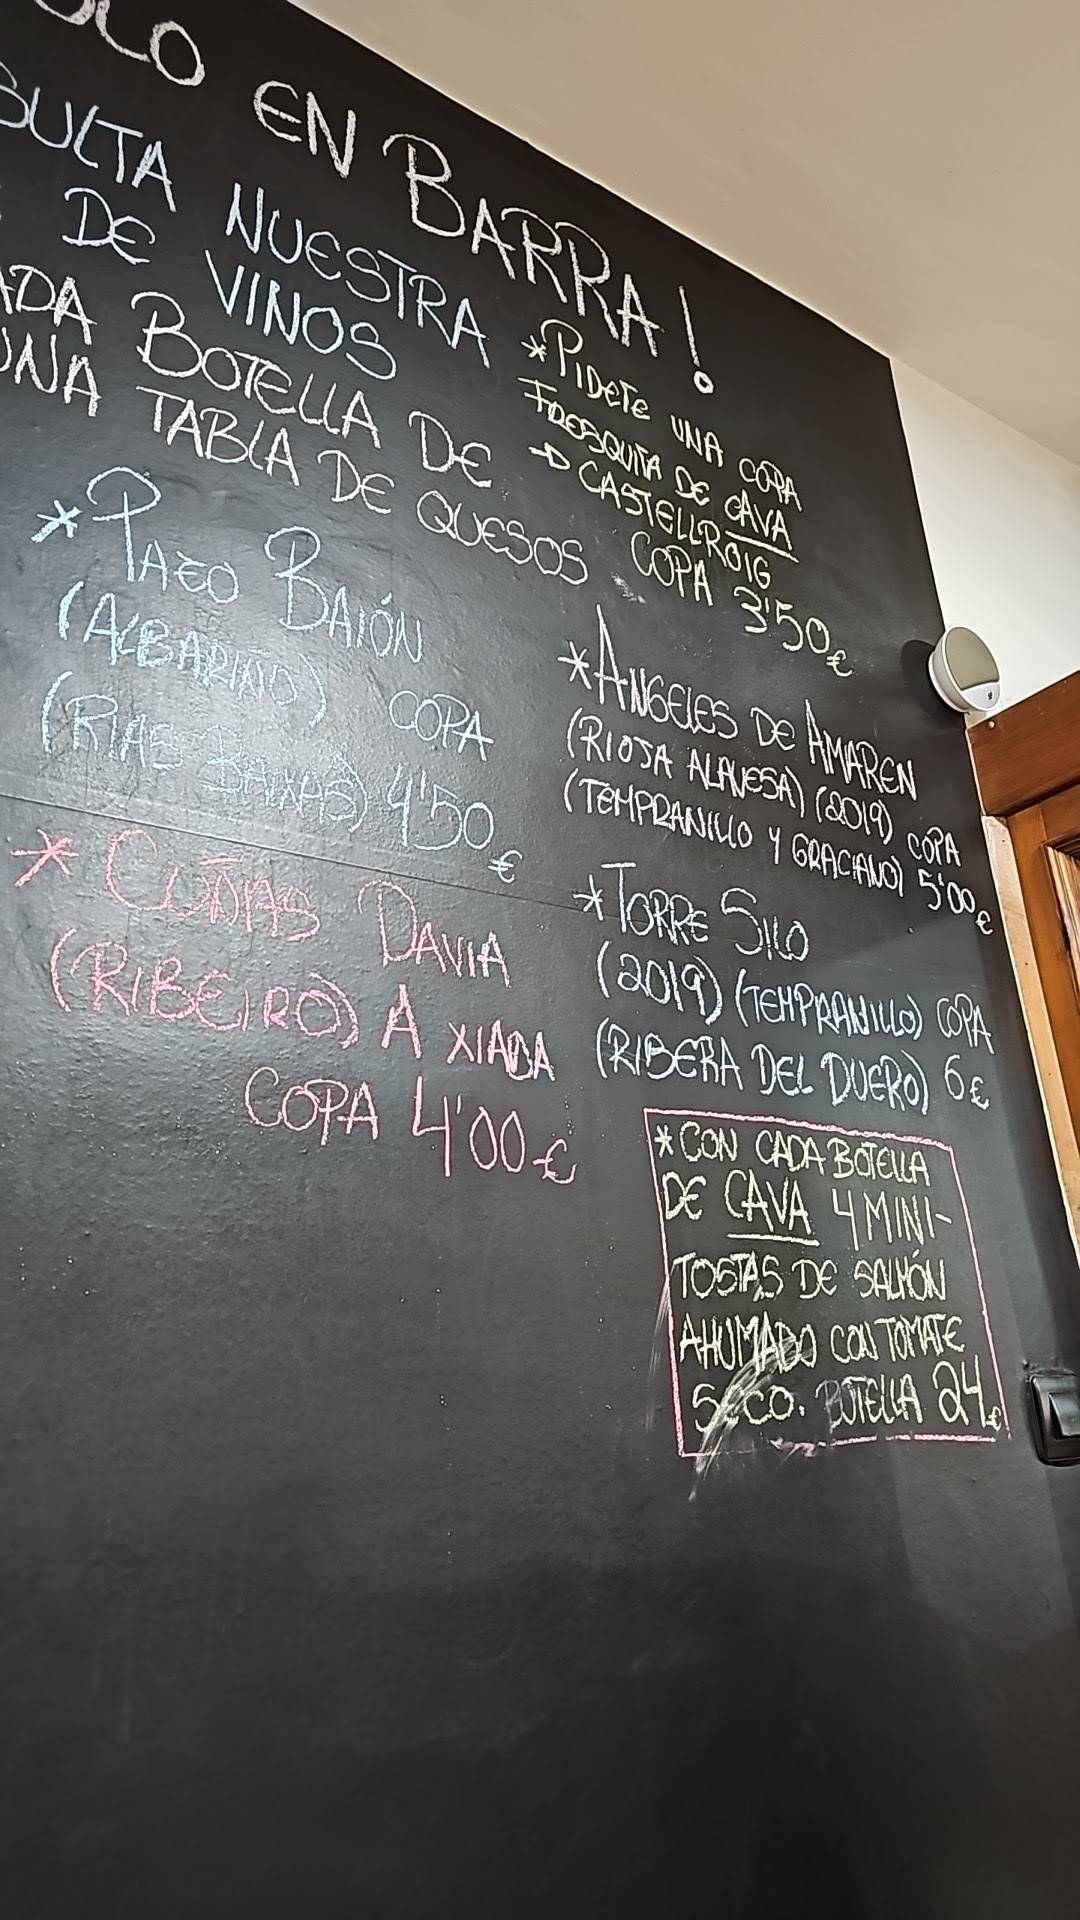 EN BARRA!
NUESTRA
DE VINOS
BOTELLA DE
UNA TABLA DE QUESOS
*PIDETE UNA COPA
FRESQUITA DE CAVA
CASTELLROIG
COPA 3'50€
*PAZO BAIÓN
(ALBARIÑO) COPA
(RIAS BAIXAS) 4'50€
*CUÑAS DAVIA
(RIBEIRO) A XIADA
COPA 4'00€
*ANGELES DE AMAREN
(RIOJA ALAVESA) (2019) COPA
(TEMPRANILLO Y GRACIANO) 5'00€
*TORRE SILO
(2019) (TEMPRANILLO) COPA
(RIBERA DEL DUERO) 6€
*CON CADA BOTELLA
DE CAVA 4 MINI-
TOSTAS DE SALMÓN
AHUMADO CON TOMATE
SECO. BOTELLA 24€